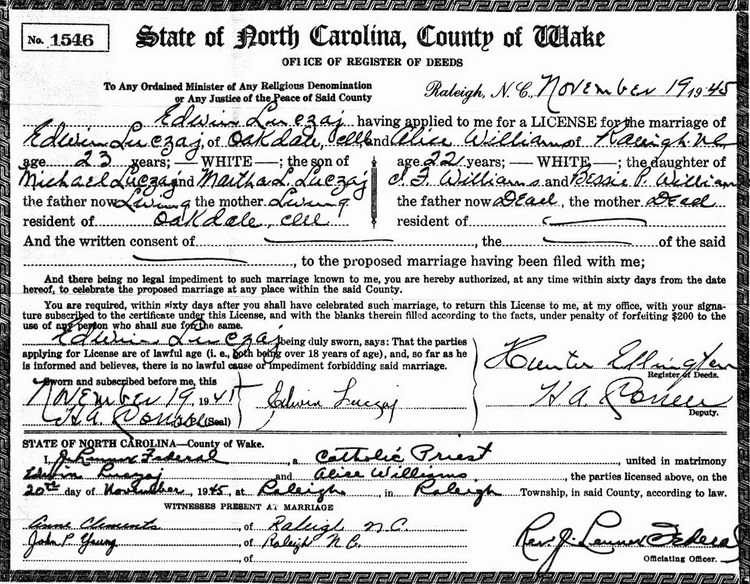 No. 1546
State of North Carolina, County of Wake
OFFICE OF REGISTER OF DEEDS
To Any Ordained Minister of Any Religious Denomination
or Any Justice of the Peace of Said County
Raleigh, N. C., November 19 1945
Edwin Luczaj having applied to me for a LICENSE for the marriage of
Edwin Luczaj of Oakdale, and Alice Williams of Raleigh NC
age 23 years; — WHITE —; the son of
Michael Luczaj and Martha L. Luczaj
the father now Living the mother Living
resident of Oakdale,
age 22 years; — WHITE —; the daughter of
Williams and Bessie P. William
the father now Dead, the mother Dead
resident of
And the written consent of , the of the said
, to the proposed marriage having been filed with me;
And there being no legal impediment to such marriage known to me, you are hereby authorized, at any time within sixty days from the date
hereof, to celebrate the proposed marriage at any place within the said County.
You are required, within sixty days after you shall have celebrated such marriage, to return this License to me, at my office, with your signa-
ture subscribed to the certificate under this License, and with the blanks therein filled according to the facts, under penalty of forfeiting $200 to the
use of any person who shall sue for the same.
Edwin Luczaj being duly sworn, says: That the parties
applying for License are of lawful age (i. e., both being over 18 years of age), and, so far as he
is informed and believes, there is no lawful cause or impediment forbidding said marriage.
Sworn and subscribed before me, this
November 19 1945
H.A. (Seal)
Edwin Luczaj
Hunter Ellington
Register of Deeds.
H.A.
Deputy.
STATE OF NORTH CAROLINA—County of Wake.
I, J. Lennox Federal, a Catholic Priest united in matrimony
Edwin Luczaj and Alice Williams, the parties licensed above, on the
20th day of November, 1945, at Raleigh, in Raleigh Township, in said County, according to law.
WITNESSES PRESENT AT MARRIAGE
Anne Clements, of Raleigh N.C.
John P Young, of Raleigh N.C.
, of
Rev. J. Lennox Federal
Officiating Officer.